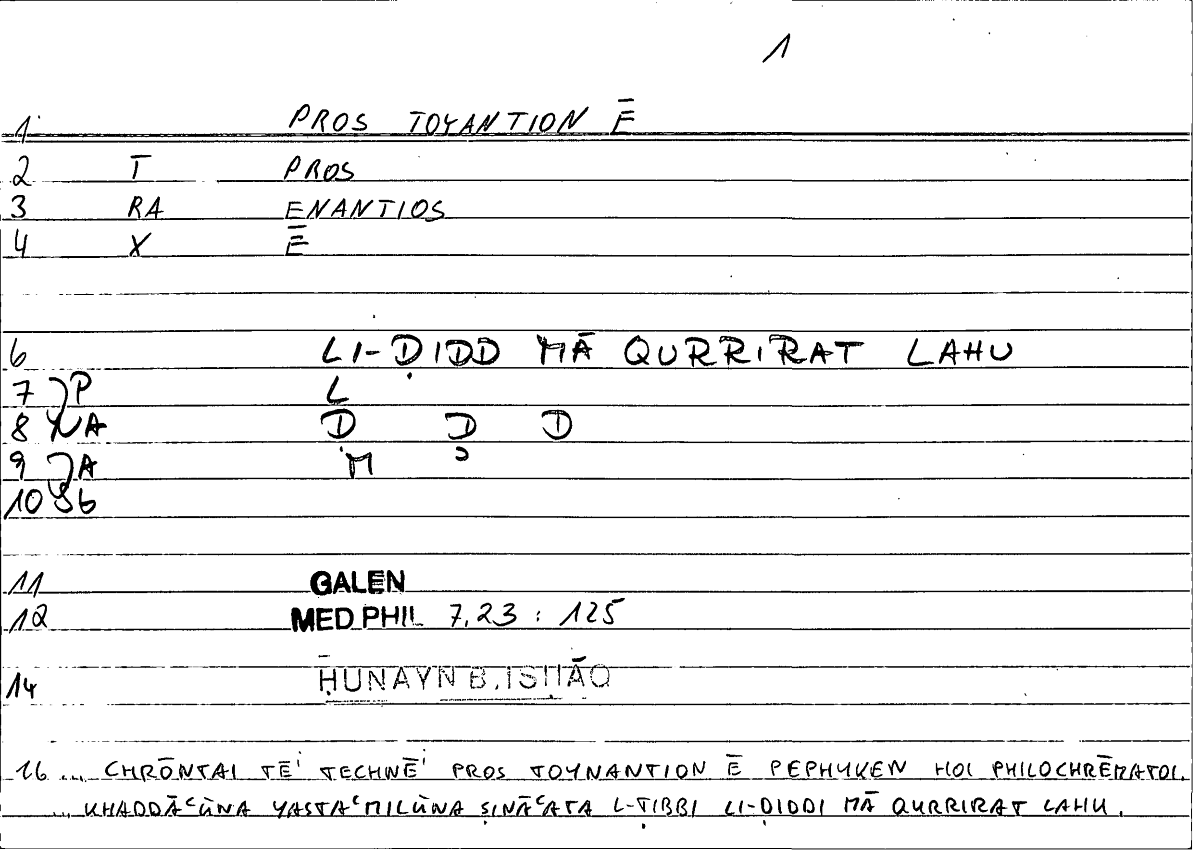 1
1 PROS TOYANTION Ē
2 T PROS
3 RA ENANTIOS
4 X Ē
6 LI-ḌIDD MĀ QURRIRAT LAHU
7 JP L
8 NA Ḍ D D
9 JA M
10 SB
11 GALEN
12 MED.PHIL 7,23 : 125
14 ḤUNAYN B. ISḤĀQ
16 ... CHRŌNTAI TĒⁱ TECHNĒⁱ PROS TOYNANTION Ē PEPHYKEN HOI PHILOCHRĒMATOI.
... KHADDĀʿŪNA YASTAʿMILŪNA ṢINĀʿATA L-ṬIBBI LI-ḌIDDI MĀ QURRIRAT LAHU.